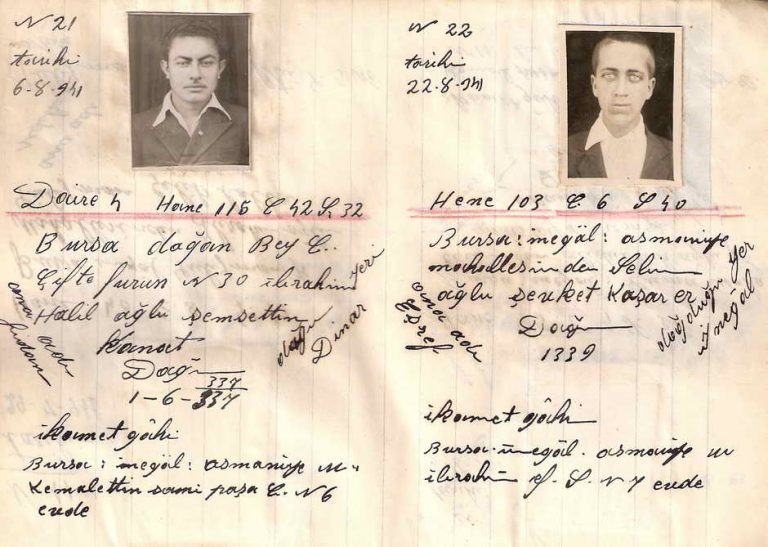 N 21
tarihi
6-8-941
Daire 4 Hane 115 C 42 S 32
Bursa doğan Bey C..
Çifte furun N 30 ibrahim
Halil ağlu şemsettin
kanat
Doğ
337
1-6-337
ana adı
doğu yeri
Dinar
ikamet gâhi
Bursa: inegöl: asmaniye m..
Kemalettin sami paşa C. N 6
evde
N 22
tarihi
22-8-941
Hene 103 C. 6 S 40
Bursa: inegöl: asmaniye
mahallesinden Selim
ağlu şevket Kaşar er
Doğ
1339
ana adı
Eşref
doğduğu yer
inegöl
ikamet gâhi
Bursa-inegöl. asmaniye m
ibrahim ef. S. N 7 evde